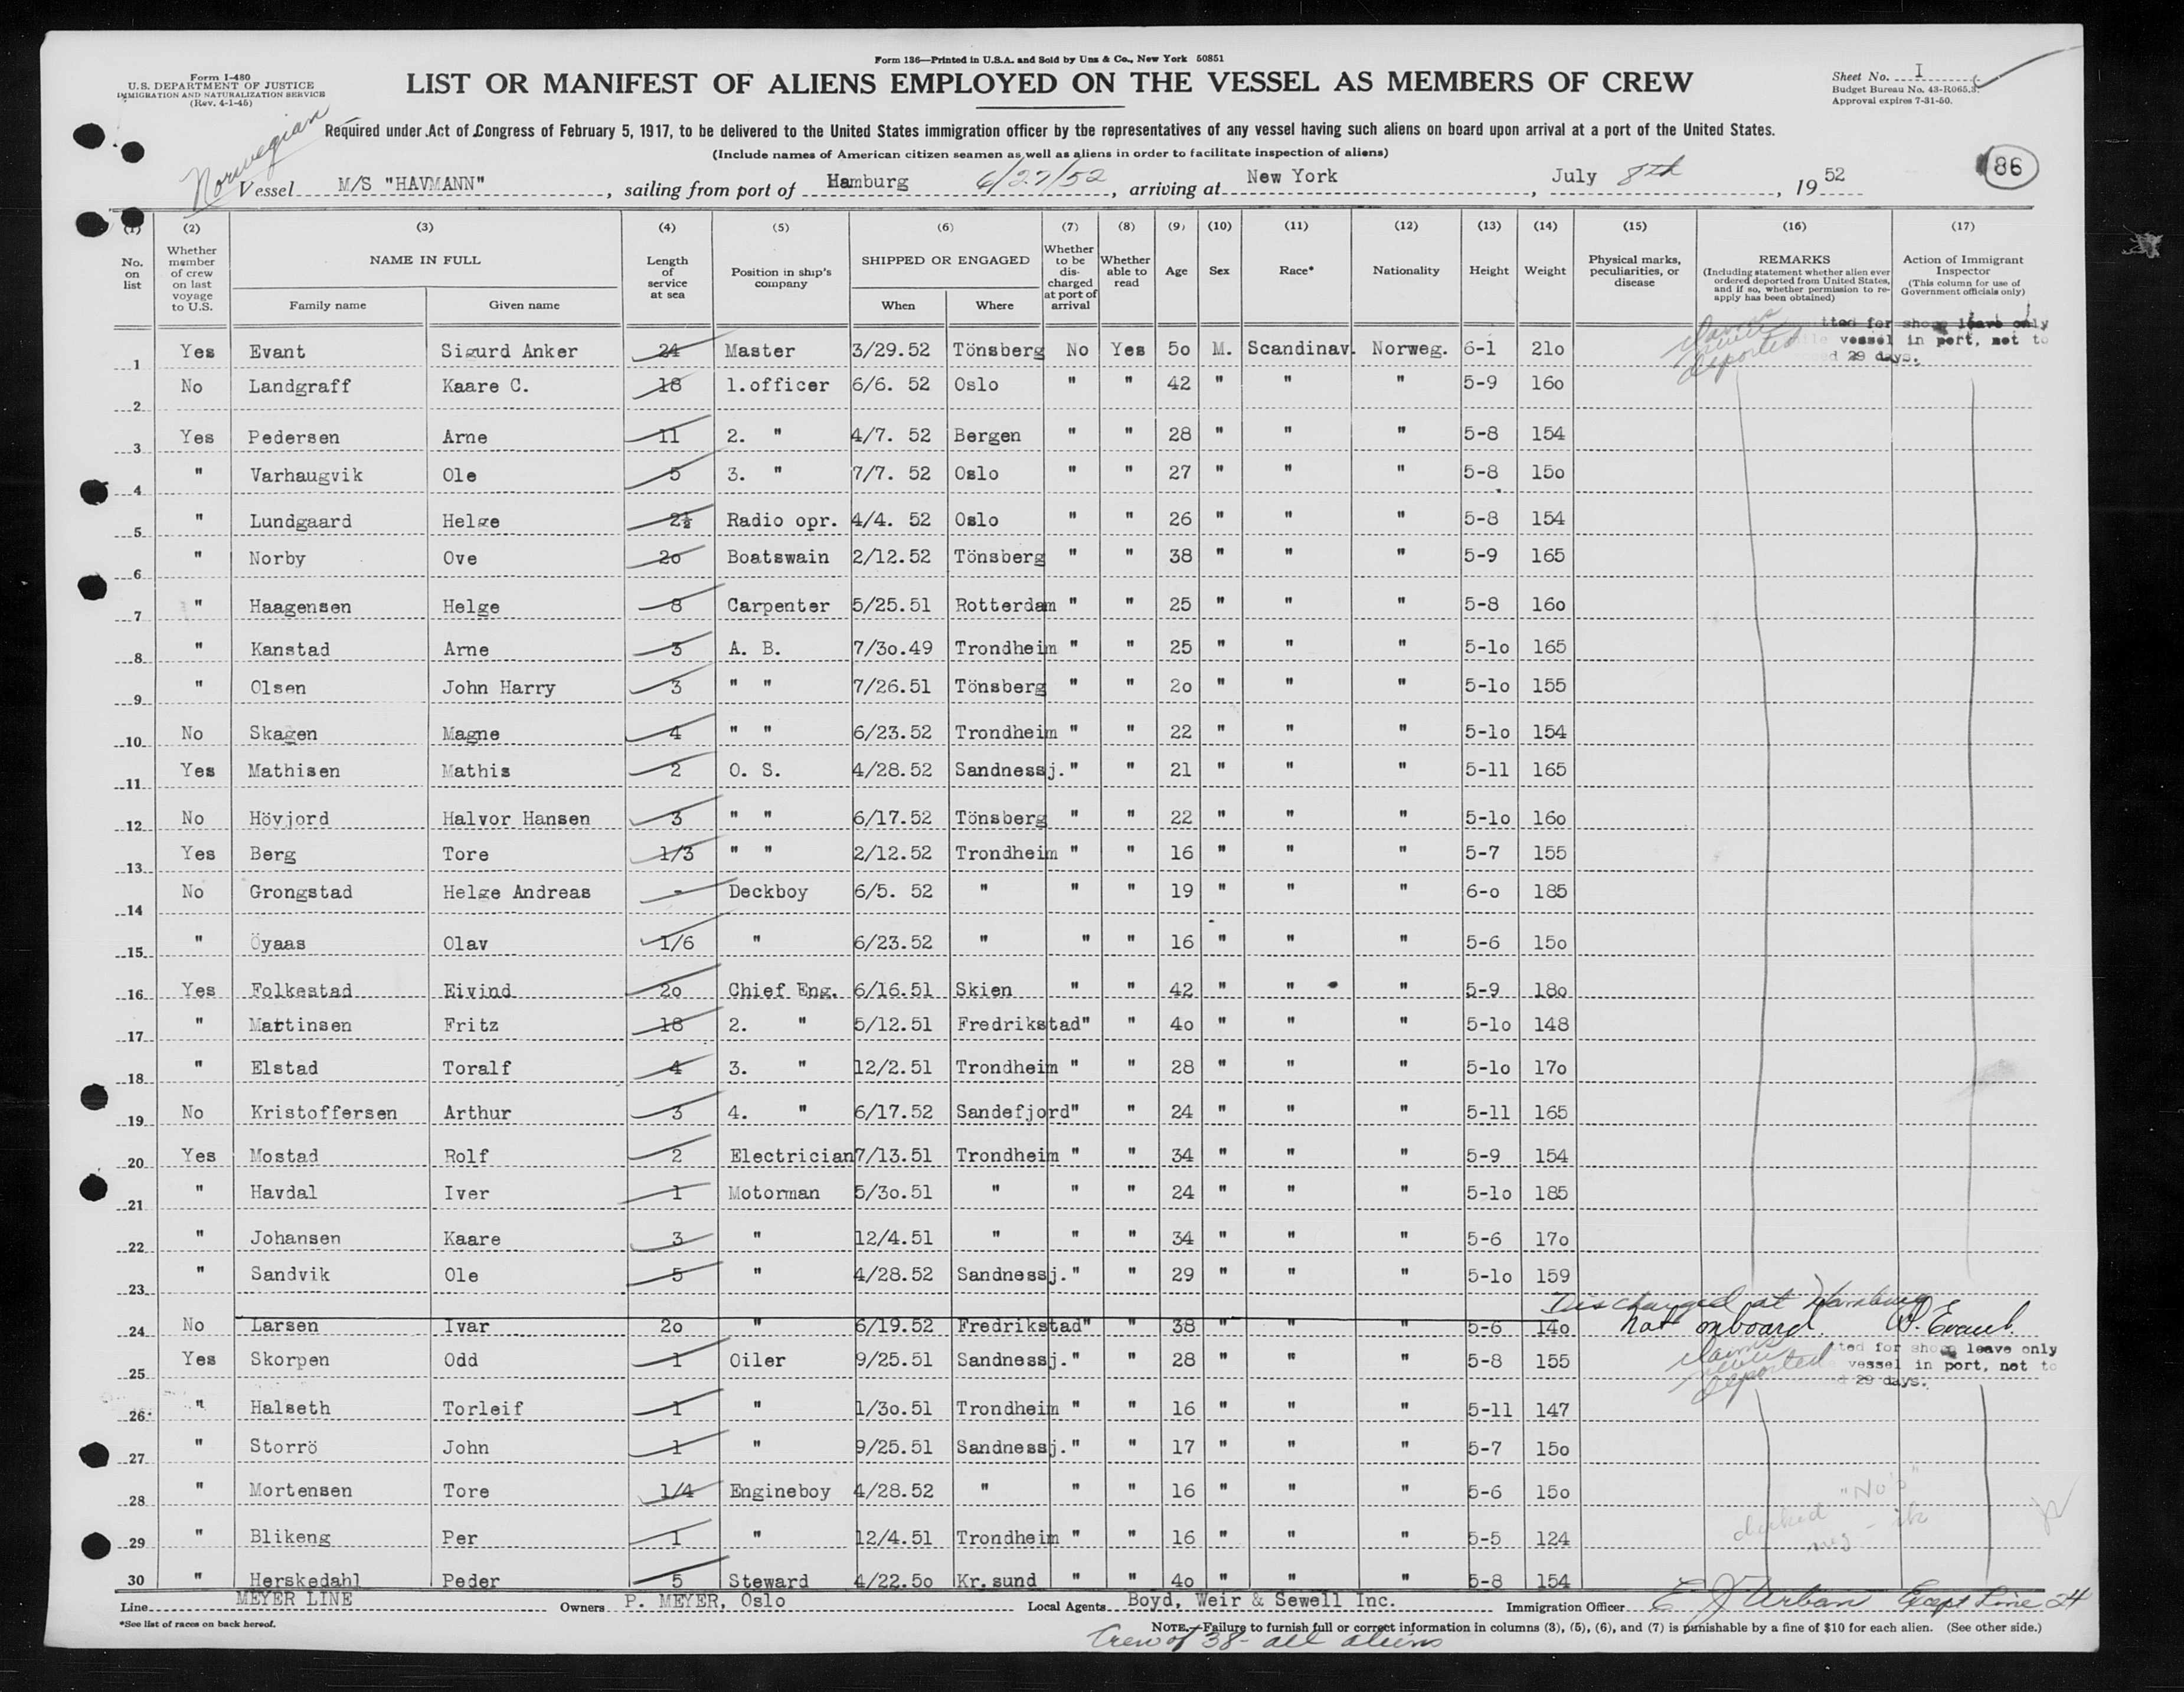 Form 136—Printed in U.S.A. and Sold by Unz & Co., New York 50851
Form I-480
U.S. DEPARTMENT OF JUSTICE
IMMIGRATION AND NATURALIZATION SERVICE
(Rev. 4-1-45)
LIST OR MANIFEST OF ALIENS EMPLOYED ON THE VESSEL AS MEMBERS OF CREW
Sheet No. I
Budget Bureau No. 43-R065.3.
Approval expires 7-31-50.
Norwegian
Required under Act of Congress of February 5, 1917, to be delivered to the United States immigration officer by the representatives of any vessel having such aliens on board upon arrival at a port of the United States.
(Include names of American citizen seamen as well as aliens in order to facilitate inspection of aliens)
86
Vessel M/S "HAVMANN", sailing from port of Hamburg 6/27/52, arriving at New York, July 8th, 1952
(1) (2) (3) (4) (5) (6) (7) (8) (9) (10) (11) (12) (13) (14) (15) (16) (17)
No. on list
Whether member of crew on last voyage to U.S.
NAME IN FULL
Family name Given name
Length of service at sea
Position in ship's company
SHIPPED OR ENGAGED
When Where
Whether to be discharged at port of arrival
Whether able to read
Age Sex Race* Nationality Height Weight
Physical marks, peculiarities, or disease
REMARKS
(Including statement whether alien ever ordered deported from United States, and if so, whether permission to re-apply has been obtained)
Action of Immigrant Inspector
(This column for use of Government officials only)
tted for shore leave only
vessel in port, not to
ed 29 days.
claims never deported
1 Yes Evant Sigurd Anker 24 Master 3/29.52 Tönsberg No Yes 5o M. Scandinav. Norweg. 6-1 21o
2 No Landgraff Kaare C. 18 1.officer 6/6. 52 Oslo " " 42 " " " 5-9 16o
3 Yes Pedersen Arne 11 2. " 4/7. 52 Bergen " " 28 " " " 5-8 154
4 " Varhaugvik Ole 5 3. " 7/7. 52 Oslo " " 27 " " " 5-8 15o
5 " Lundgaard Helge 2½ Radio opr. 4/4. 52 Oslo " " 26 " " " 5-8 154
6 " Norby Ove 2o Boatswain 2/12.52 Tönsberg " " 38 " " " 5-9 165
7 " Haagensen Helge 8 Carpenter 5/25.51 Rotterdam " " 25 " " " 5-8 16o
8 " Kanstad Arne 3 A. B. 7/3o.49 Trondheim " " 25 " " " 5-1o 165
9 " Olsen John Harry 3 " " 7/26.51 Tönsberg " " 2o " " " 5-1o 155
10 No Skagen Magne 4 " " 6/23.52 Trondheim " " 22 " " " 5-1o 154
11 Yes Mathisen Mathis 2 O. S. 4/28.52 Sandnessj. " " 21 " " " 5-11 165
12 No Hövjord Halvor Hansen 3 " " 6/17.52 Tönsberg " " 22 " " " 5-1o 16o
13 Yes Berg Tore 1/3 " " 2/12.52 Trondheim " " 16 " " " 5-7 155
14 No Grongstad Helge Andreas - Deckboy 6/5. 52 " " " 19 " " " 6-o 185
15 " Öyaas Olav 1/6 " 6/23.52 " " " 16 " " " 5-6 15o
16 Yes Folkestad Eivind 2o Chief Eng. 6/16.51 Skien " " 42 " " " 5-9 18o
17 " Martinsen Fritz 18 2. " 5/12.51 Fredrikstad " " 4o " " " 5-1o 148
18 " Elstad Toralf 4 3. " 12/2.51 Trondheim " " 28 " " " 5-1o 17o
19 No Kristoffersen Arthur 3 4. " 6/17.52 Sandefjord " " 24 " " " 5-11 165
20 Yes Mostad Rolf 2 Electrician 7/13.51 Trondheim " " 34 " " " 5-9 154
21 " Havdal Iver 1 Motorman 5/3o.51 " " " 24 " " " 5-1o 185
22 " Johansen Kaare 3 " 12/4.51 " " " 34 " " " 5-6 17o
23 " Sandvik Ole 5 " 4/28.52 Sandnessj. " " 29 " " " 5-1o 159
Discharged at Hamburg
24 No Larsen Ivar 2o " 6/19.52 Fredrikstad " " 38 " " " 5-6 14o not onboard. S. Evant.
25 Yes Skorpen Odd 1 Oiler 9/25.51 Sandnessj. " " 28 " " " 5-8 155
claims never deported
tted for shore leave only
vessel in port, not to
d 29 days.
26 " Halseth Torleif 1 " 1/3o.51 Trondheim " " 16 " " " 5-11 147
27 " Storrö John 1 " 9/25.51 Sandnessj. " " 17 " " " 5-7 15o
28 " Mortensen Tore 1/4 Engineboy 4/28.52 " " " 16 " " " 5-6 15o
29 " Blikeng Per 1 " 12/4.51 Trondheim " " 16 " " " 5-5 124
checked "No's"
neg -
30 " Herskedahl Peder 5 Steward 4/22.5o Kr.sund " " 4o " " " 5-8 154
Line MEYER LINE Owners P. MEYER, Oslo Local Agents Boyd, Weir & Sewell Inc. Immigration Officer E J Urban Except Line 24
*See list of races on back hereof.
NOTE.—Failure to furnish full or correct information in columns (3), (5), (6), and (7) is punishable by a fine of $10 for each alien. (See other side.)
Crew of 38 - all aliens